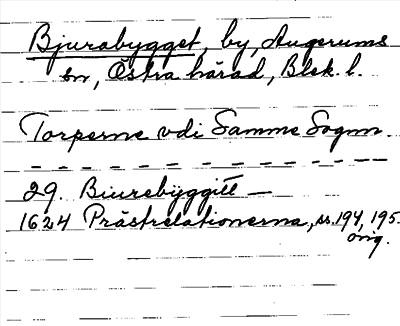 Bjurabygget, by, Augerums
sn, Östra härad, Blek. l.
Torperne vdi Samme Sogun.
29. Biurebÿggitt —
1624 Prästrelationerna, ss. 194, 195.
orig.